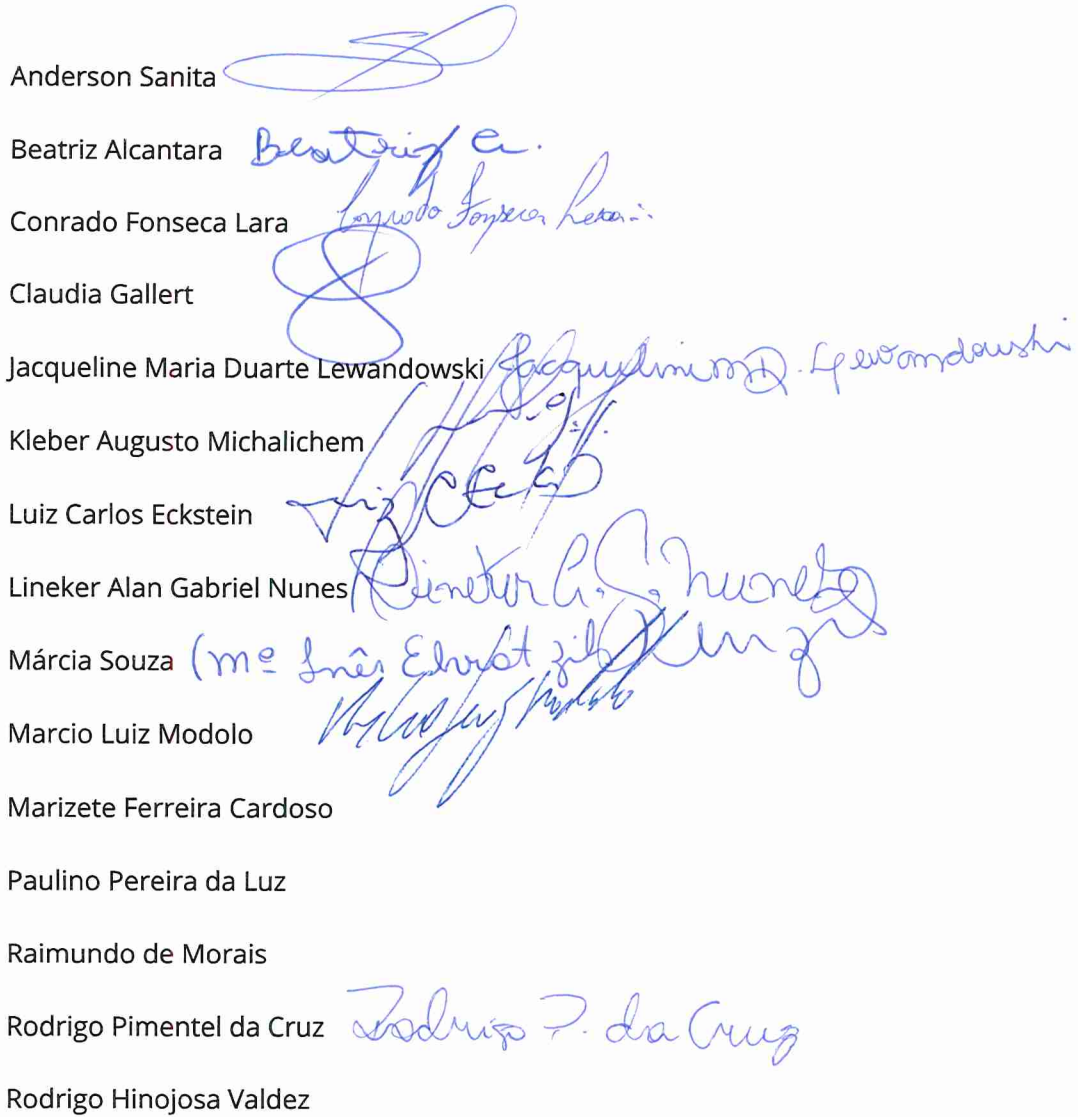 Anderson Sanita
Beatriz Alcantara Beatriz a.
Conrado Fonseca Lara Conrado Fonseca Lara
Claudia Gallert
Jacqueline Maria Duarte Lewandowski Jacqueline M D. Lewandowski
Kleber Augusto Michalichem
Luiz Carlos Eckstein Luiz C
Lineker Alan Gabriel Nunes Lineker A. G. Nunes
Márcia Souza (Mª Inês
Marcio Luiz Modolo Marcio Luiz Modolo
Marizete Ferreira Cardoso
Paulino Pereira da Luz
Raimundo de Morais
Rodrigo Pimentel da Cruz Rodrigo P. da Cruz
Rodrigo Hinojosa Valdez